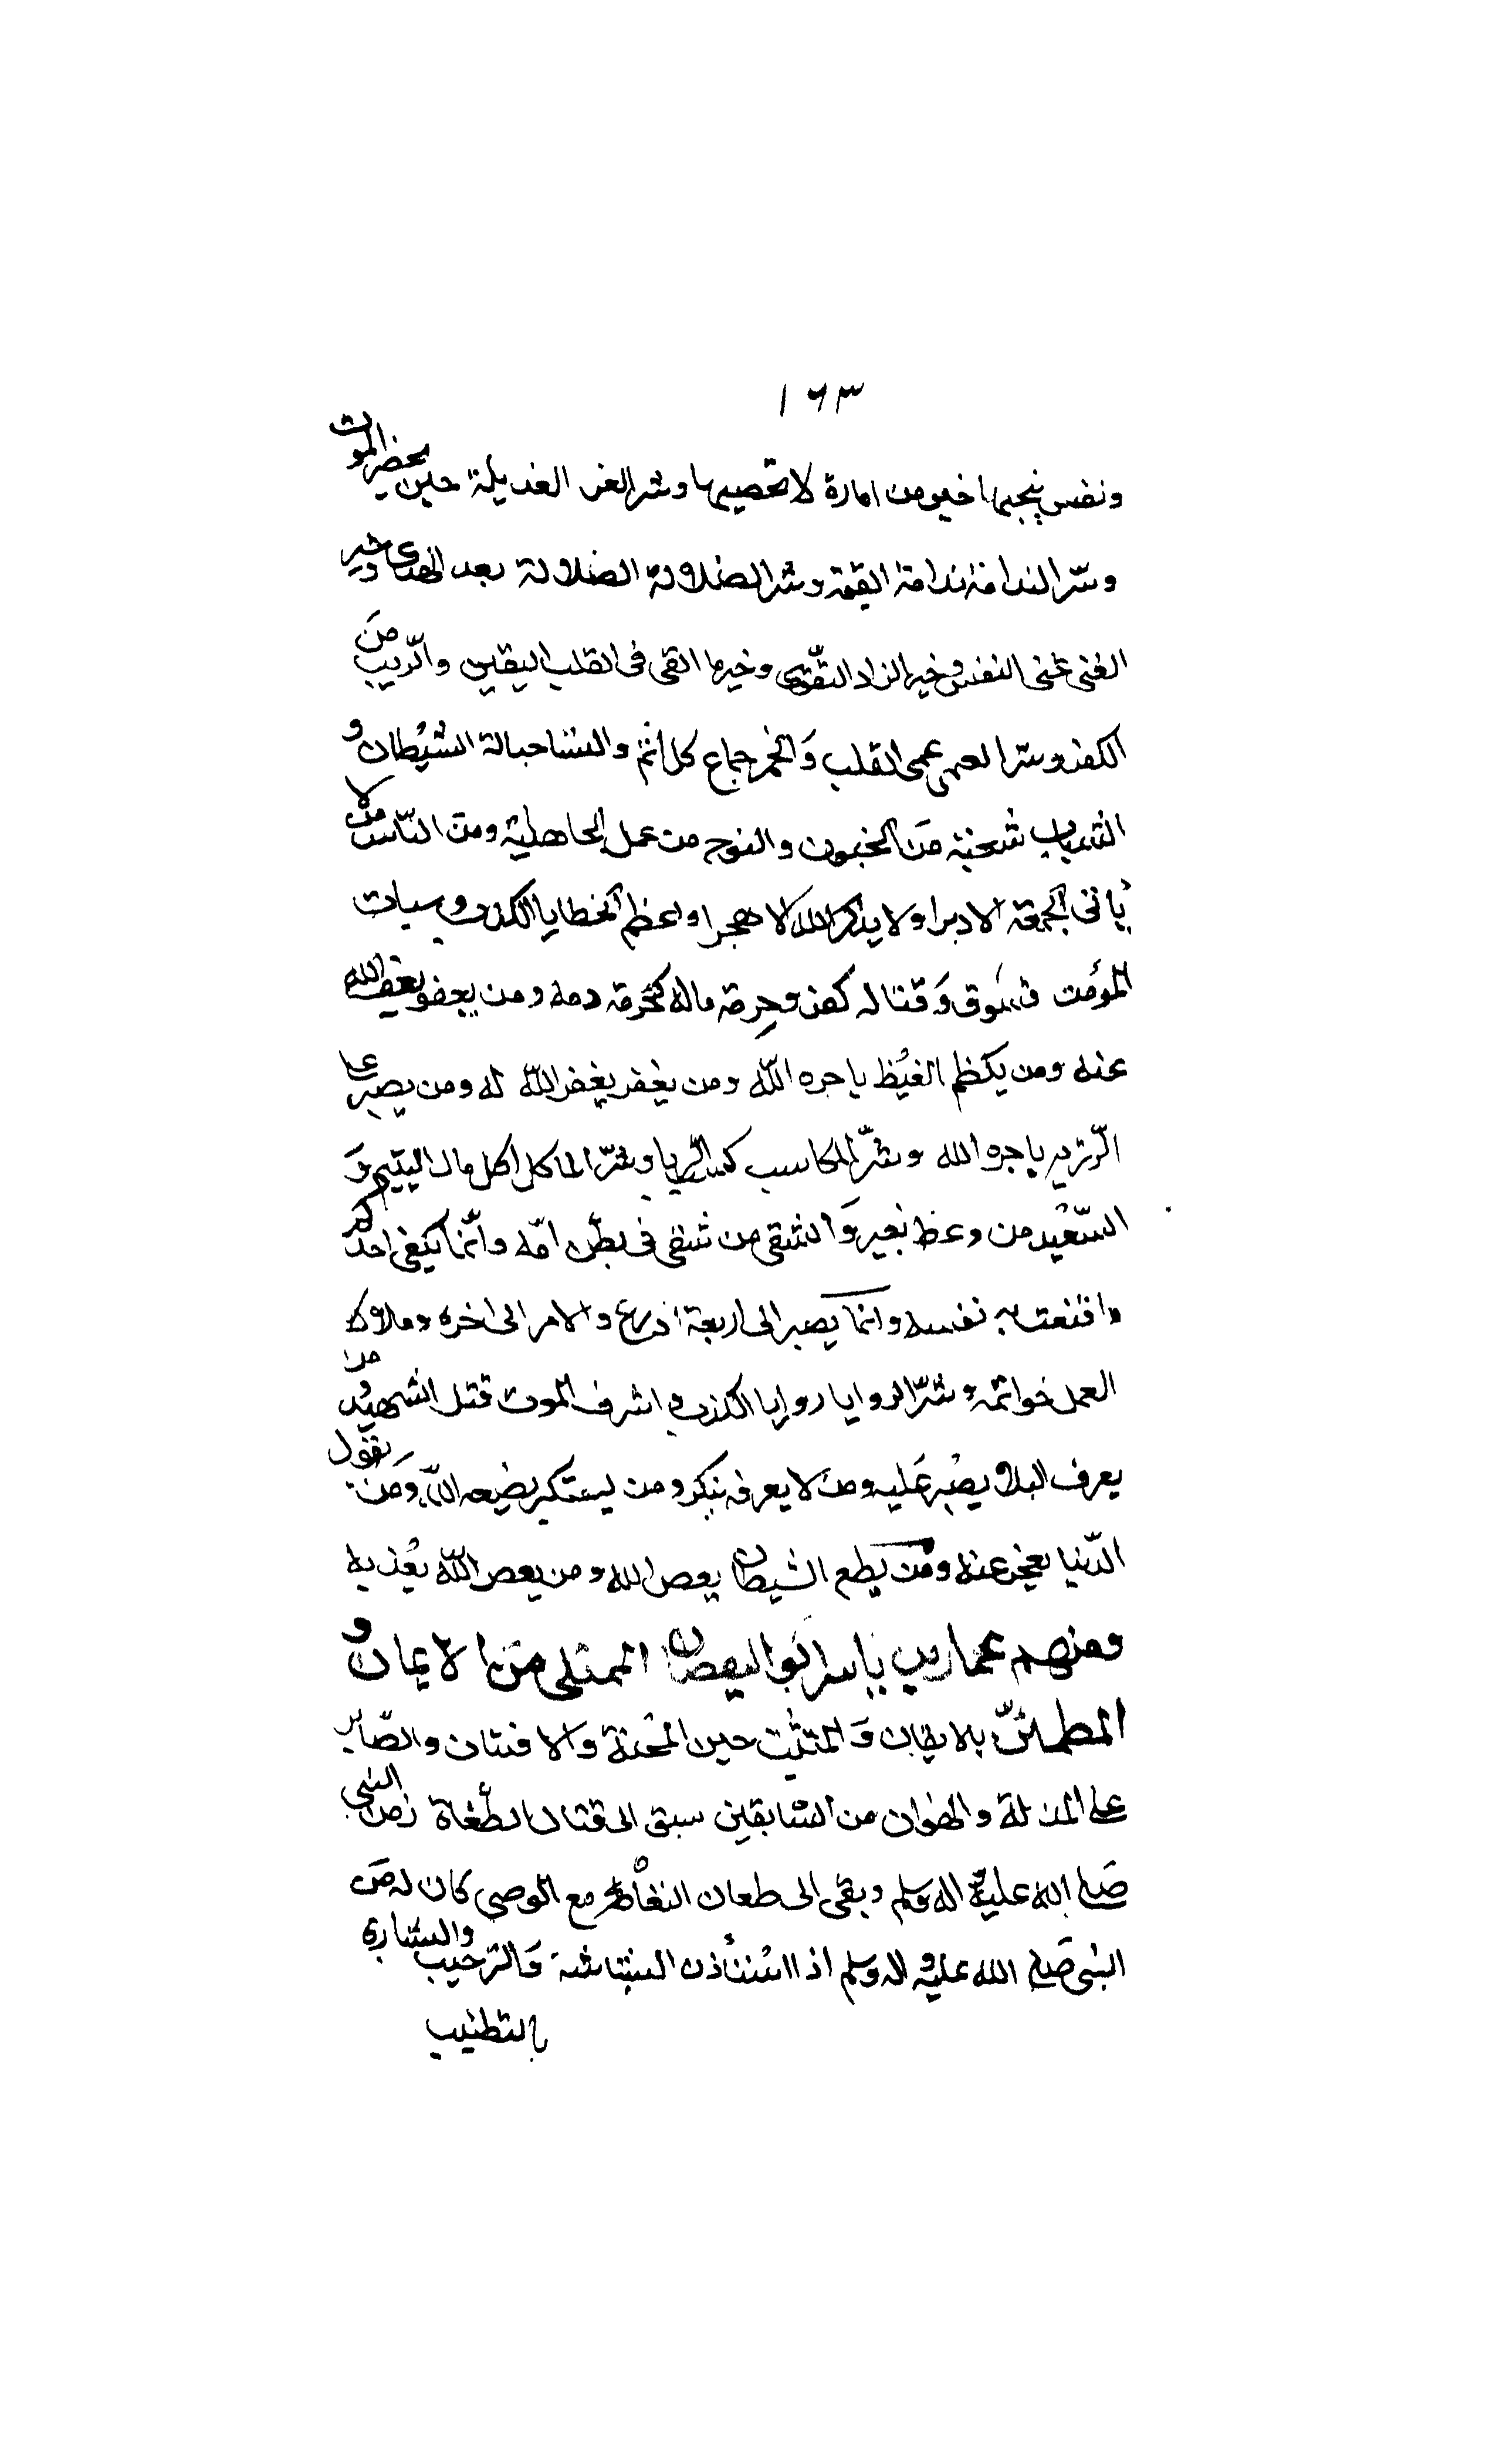 ١٦٣
ونفس ينجيها خير من امارة لا تحصيها وشر العذيلة حين يحضر الموت
وشر الندامة ندامة القيمة وشر الضلالة الضلالة بعد الهدى وخير
الغنى غنى النفس وخير الزاد التقوى وخير ما القى فى القلب اليقين والريب من
الكفر وشر العمى عمى القلب وَالخمر جماع كل اثم والنسا حبالة الشيْطان و
الشباب شعبة مَن الجنون والنوح من عمل الجاهلية ومن النّاس من لا
ياتى الجمعة الا دبرا ولا يذكر الله الا هجرا واعظم الخطايا الكذب وسباب
المؤمن فسوق وَقتاله كفر وحرمة ماله كحُرمة دمه ومن يعفو يعف الله
عنه ومن يكظم الغيْظ ياجره اللّه ومن يغفر يغفر اللّه له ومن يصبر على
الرّزيه ياجره الله وشرّ المكاسب كسب الربا وشرّ الماكل اكل مال اليتيم وَ
السّعْيد من وعظ بغيره وَالشقى من شقى فى بطن امّه وانّما يكفى احدكم
ما قنعت به نفسه وانما يصير الى اربعة اذرع والامر الى اخره وملاك
العمل خواتمه وشرّ الروايا روايا الكذب و اشرف الموت قتل الشهيْد من
يعرف البلا يصْبر عَليه ومن لا يعرفه ينكر ومن يستكبر يضيعه اللّه وَمن يتول
الدّنيا يعجز عنه ومَن يطع الشيطان يعص الله ومن يعص اللّه يُعذبه
ومنهم عمار بن ياسر ابو اليقصان الممتلى من الايمان و
المطمئنّ بالايقان وَالمتثبت حين المحْنة والافتتان والصّابر
على المذلة والهوان من السّابقين سبق الى قتال الطغاة زمن النبى
صَلى الله عليه واله وسلم وبقى الى طعان البغاة مع الوصى كان له من
النبى صَلى الله عليه واله وسلم اذا اسْتأذن البشاشة وَالترحيب والبشارة
بالتطييب